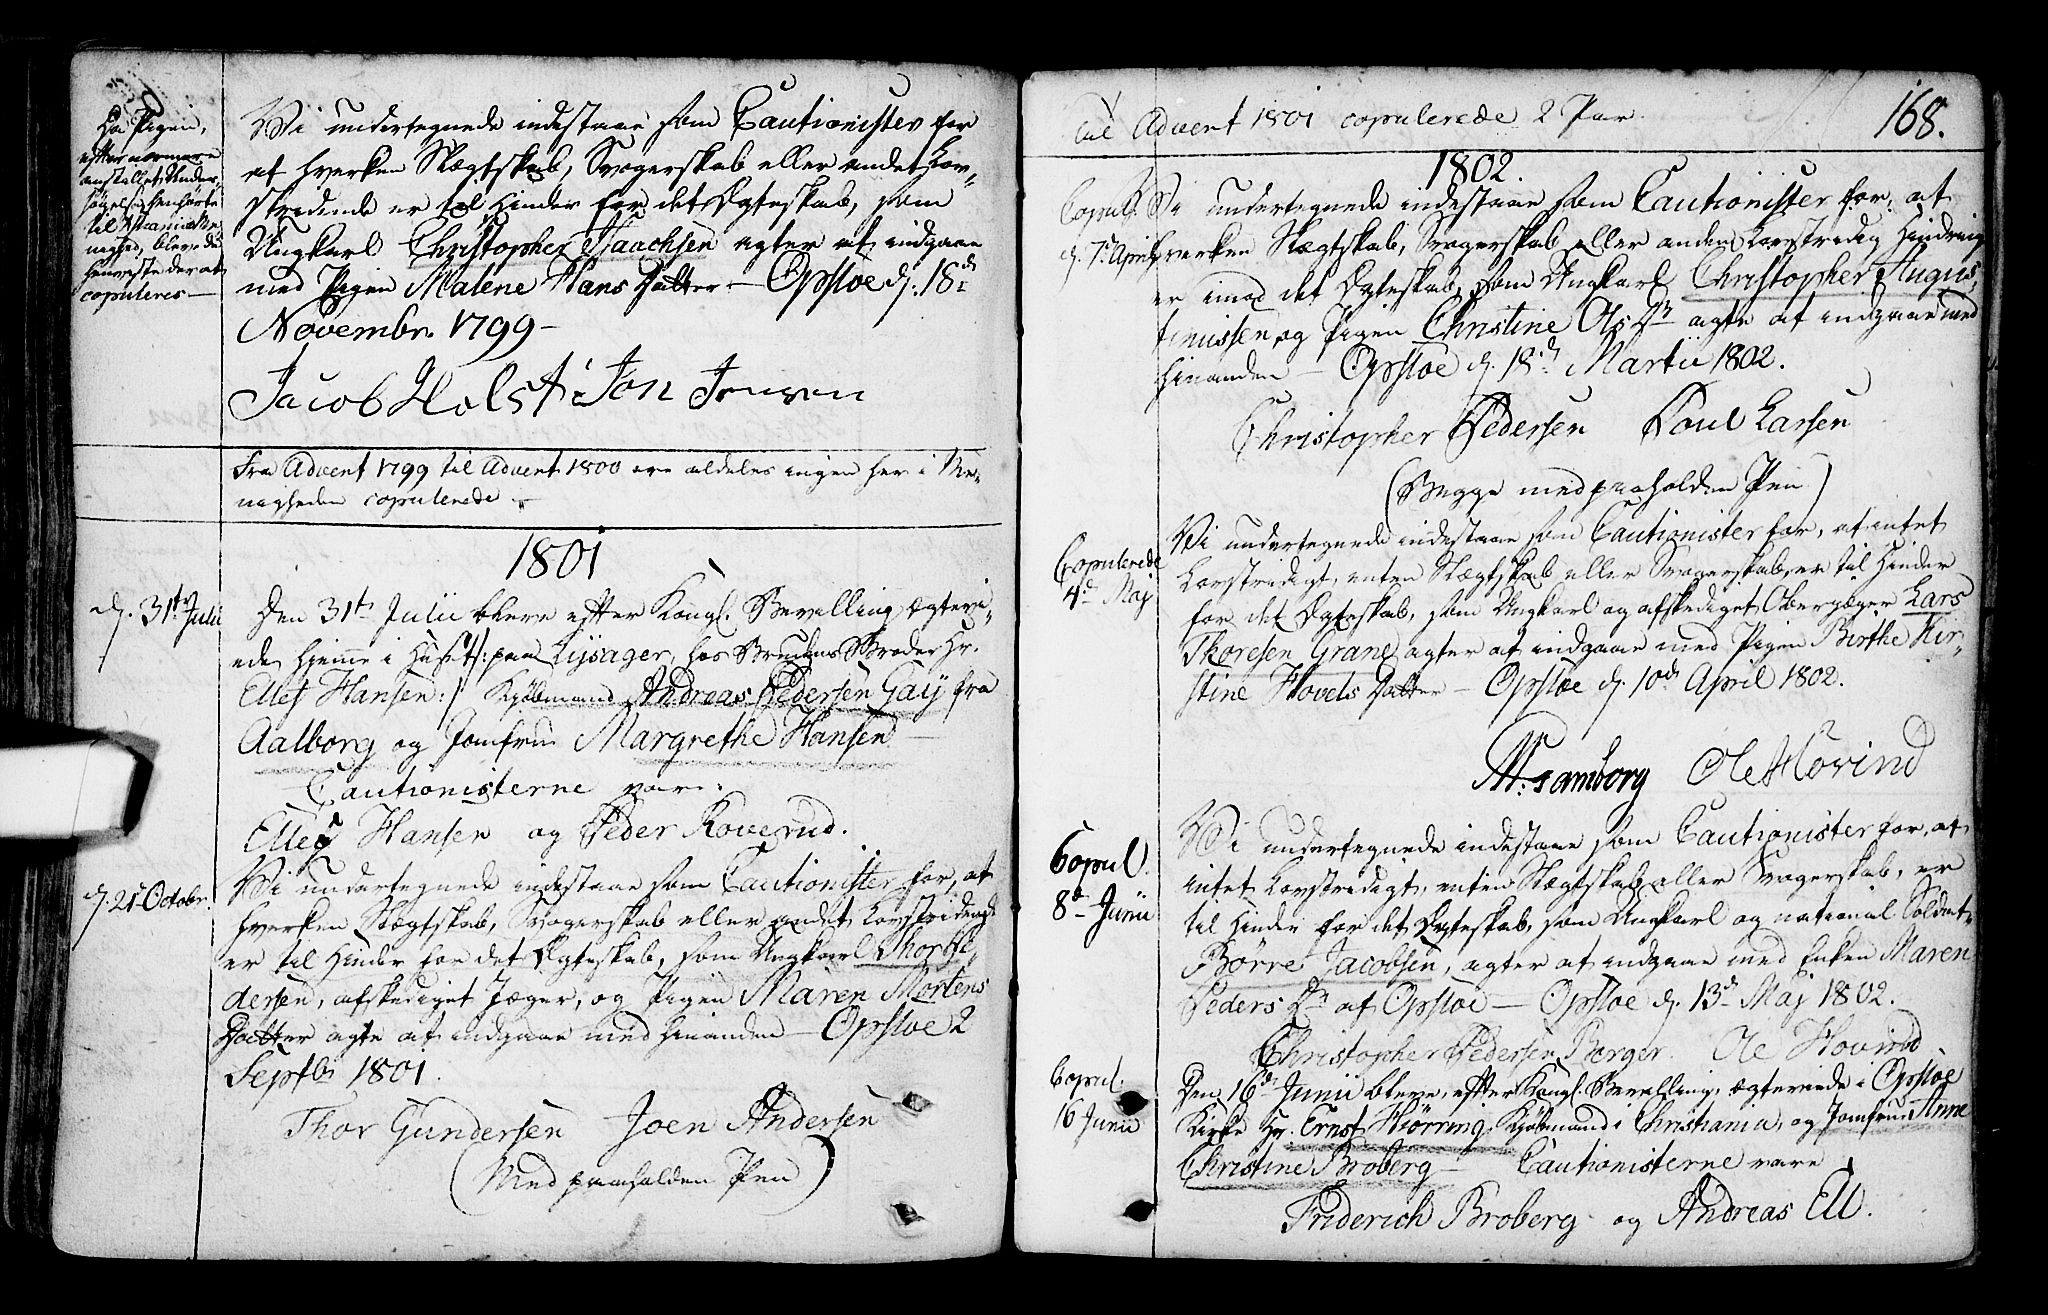 Da Pigen,
efter nærmere
anstillet Under-
søgelse, henhørte
til Christianiæ Me-
nighed, bleve de
henviste der at
copuleres —
Vi undertegnede indestaae som Cautionister for
at hverken Slægtskab, Svogerskab eller andet Lov-
stridende er til Hinder for det Ægteskab, som
Ungkarl Christopher Isaachsen agter at indgaae
med Pigen Malene Hans Datter — Opsloe d. 18de
Novembr. 1799 —
Jacob Holst Jon Jensen
Fra Advent 1799 til Advent 1800 ere aldeles ingen her i Me-
nigheden copulerede —
1801
d. 31te Julii
Den 31te Julii bleve efter Kongl. Bevilling ægtevi-
ede hjemme i Huset /: paa Lysager, hos Brudens Broder Hr.
Ellef Hansen :/ Kjøbmand Andreas Pedersen Gay fra
Aalborg og Jomfru Margrethe Hansen —
Cautionisterne var:
Ellef Hansen og Peder Roverud.
d. 21de Octobr.
Vi undertegnede indestaae som Cautionister for, at
hverken Slægtskab, Svogerskab eller andet Lovstridende
er til Hinder for det Ægteskab, som Ungkarl Thor Pe-
dersen, afskediget Jæger, og Pigen Maren Mortens
Datter agte at indgaae med hinanden — Opsloe 2
Septbr 1801.
Thor Gundersen Joen Andersen
(Med paaholden Pen)
til Advent 1801 copulerede 2 Par.
168.
1802.
Copul.
d. 7de April
Vi undertegnede indestaae som Cautionister for, at
hverken Slægtskab, Svogerskab eller anden Lovstridig Hindring
er imod det Ægteskab, som Ungkarl Christopher Augus-
tinussen og Pigen Christine Ols Dr agte at indgaae med
hinanden — Opsloe d. 18de Martii 1802.
Christopher Pedersen Poul Larsen
(Begge med paaholden Pen)
Copulerede
4de Maj
Vi undertegnede indestaae som Cautionister for, at intet
Lovstridigt, enten Slægtskab eller Svogerskab, er til Hinder
for det Ægteskab, som Ungkarl og afskediget Oberjæger Lars
Thoresen Grane agter at indgaae med Pigen Birthe Kir-
stine Hovels Datter — Opsloe d. 10de April 1802.
Ole Hovind
Copul.
8de Junii
Vi undertegnede indestaae som Cautionister for, at
intet Lovstridigt, enten Slægtskab eller Svogerskab, er
til Hinder for det Ægteskab, som Ungkarl og national Soldat
Börre Jacobsen, agter at indgaae med Enken Maren
Peders Dr af Opsloe — Opsloe d. 13de Maj 1802.
Christopher Pedersen Borger. Ole Hovind
Copul.
16 Junii
Den 16de Junii bleve, efter Kongl. Bevilling, ægteviede i Opsloe
Kirke Hr. Ernst Hiörring, Kjøbmand i Christiania, og Jomfrue Anne
Christine Broberg — Cautionisterne vare
Friderich Broberg — og Andreas Ell.